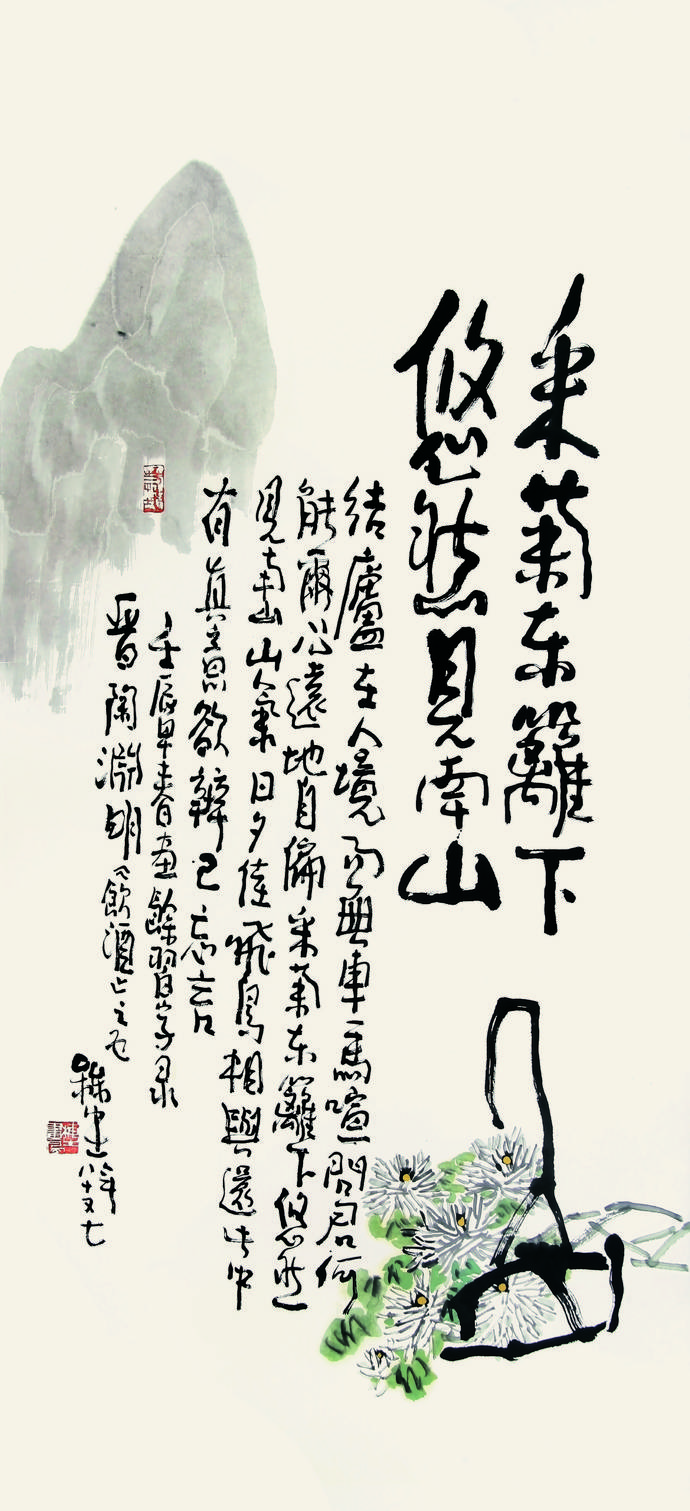 采菊东籬下
悠然見南山
結廬在人境而無車馬喧問君何
能爾心遠地自偏采菊东籬下悠然
見南山山氣日夕佳飛鳥相與還此中
有真意欲辨已忘言
壬辰早春畫餘習字录
晋陶淵明飲酒之五
八十又七